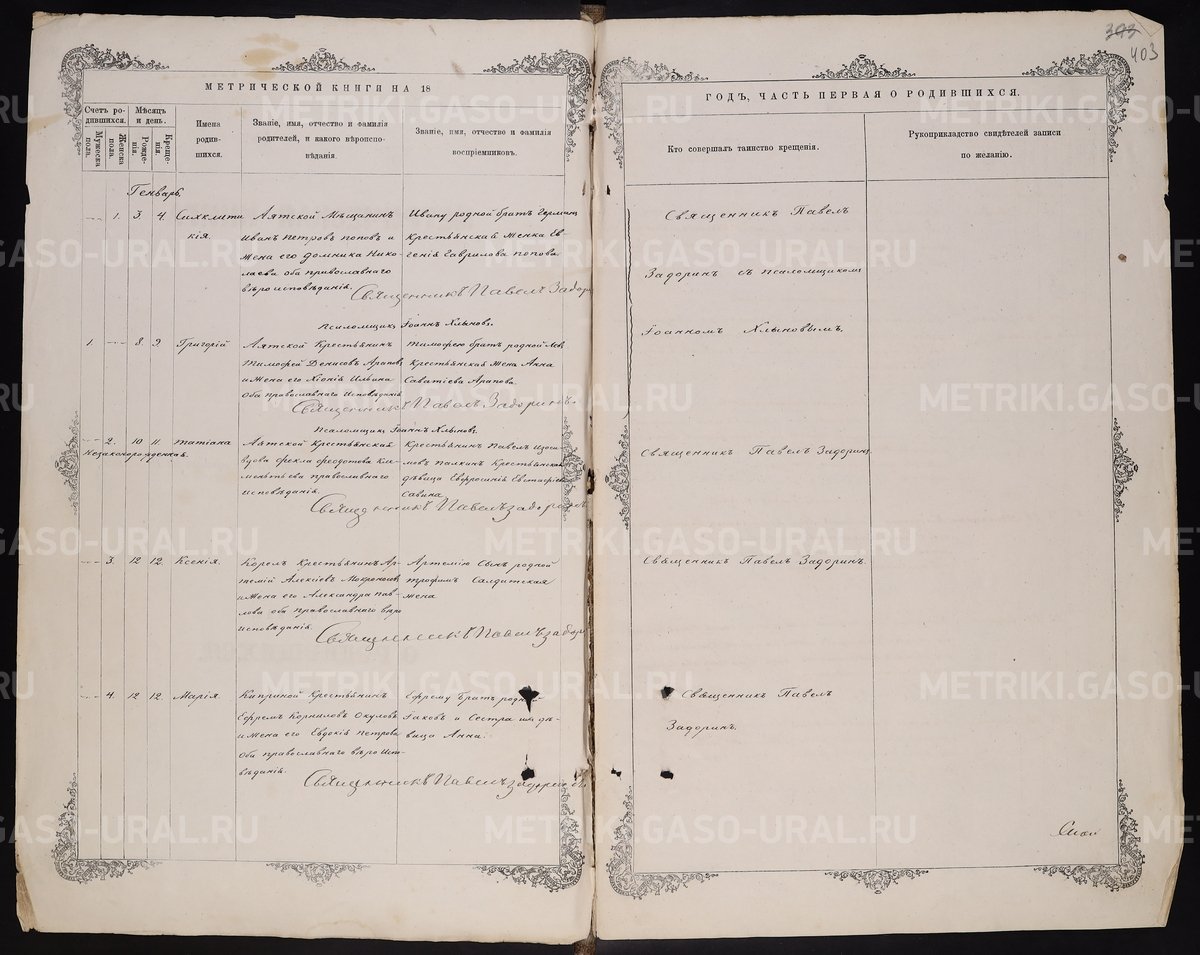 393
403
МЕТРИЧЕСКОЙ КНИГИ НА 18
ГОДЪ, ЧАСТЬ ПЕРВАЯ О РОДИВШИХСЯ.
Счетъ родившихся.
Мужеска пола.
Женска пола.
Мѣсяцъ и день.
Рожденія.
Крещенія.
Имена родившихся.
Званіе, имя, отчество и фамилія
родителей, и какого вѣроисповѣданія.
Званіе, имя, отчество и фамилія
воспріемниковъ.
Кто совершалъ таинство крещенія.
Рукоприкладство свидѣтелей записи
по желанію.
Генварь.
1. 3 4. Синклитикія.
Аятской Мѣщанинъ
Иванъ Петровъ Поповъ и
жена его Домника Николаева оба православнаго
вѣроисповѣданія.
Ивану родной братъ Германъ
Крестьянская Женка Евгенія Гаврилова Попова
Священникъ Павелъ Задоринъ
Псаломщикъ Іоаннъ Хлыновъ.
Священникъ Павелъ
Задоринъ съ псаломщикомъ
Іоанномъ Хлыновымъ.
1. 8 9. Григорій
Аятской Крестьянинъ
Тимофей Денисовъ Арапов
и Жена его Хіонія Ильина
Оба православнаго Исповѣданія
Тимофею братъ родной
Крестьянская Жена Анна
Саватіева Арапова.
Священникъ Павелъ Задоринъ.
Псаломщикъ Іоаннъ Хлыновъ.
2. 10 11. Татіана
Незаконорожденная.
Аятской Крестьянская
вдова Фекла Феодотова
православнаго
исповѣданія.
Крестьянинъ Павелъ
Палкинъ Крестьянская
дѣвица Евфросинія
Савина
Священникъ Павелъ Задоринъ
Священникъ Павелъ Задоринъ
3. 12 12. Ксенія.
Корелъ Крестьянинъ Артемій Алексіевъ Мокроносов
и Жена его Александра Павлова оба православнаго вѣроисповѣданія.
Артемію Сынъ родной
Трофимъ Салдатская
жена
Священникъ Павелъ Задор
Священникъ Павелъ Задоринъ.
4. 12 12. Марія.
Крестьянинъ
Ефремъ Корниловъ Окуловъ
и Жена его Евдокія Петрова
Оба православнаго вѣроисповѣданія.
Ефрему братъ родной
Іаковъ и Сестра дѣвица Анна.
Священникъ Павелъ Задорин
Священникъ Павелъ
Задоринъ.
METRIKI.GASO-URAL.RU